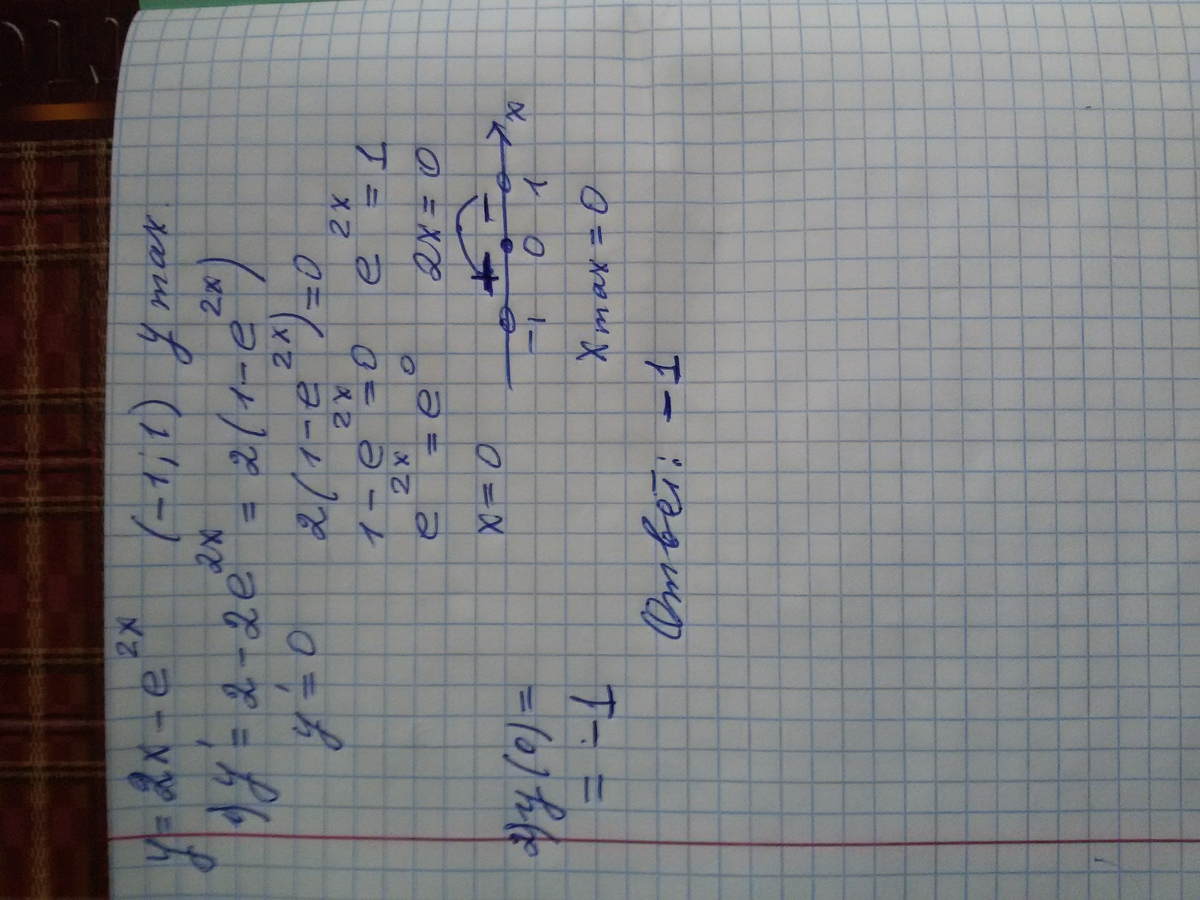 y = 2x - e^2x (-1; 1) y max.
1) y' = 2 - 2e^2x = 2(1 - e^2x)
y' = 0 2(1 - e^2x) = 0
1 - e^2x = 0 e^2x = 1
e^2x = e^0 2x = 0
x = 0
+ -
-1 0 1 x
2) y(0) =
= -1
x max = 0
Ответ: -1